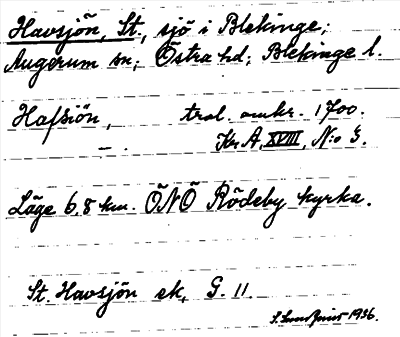 Havsjön, St., sjö i Blekinge;
Augerum sn; Östra hd; Blekinge l.
Hafsiön, trol. omkr. 1700.
- . Kr A, XVIII, N:o 3.
Läge 6,8 km. ÖNÖ Rödeby kyrka.
St. Havsjön ek, G. 11.
1936.